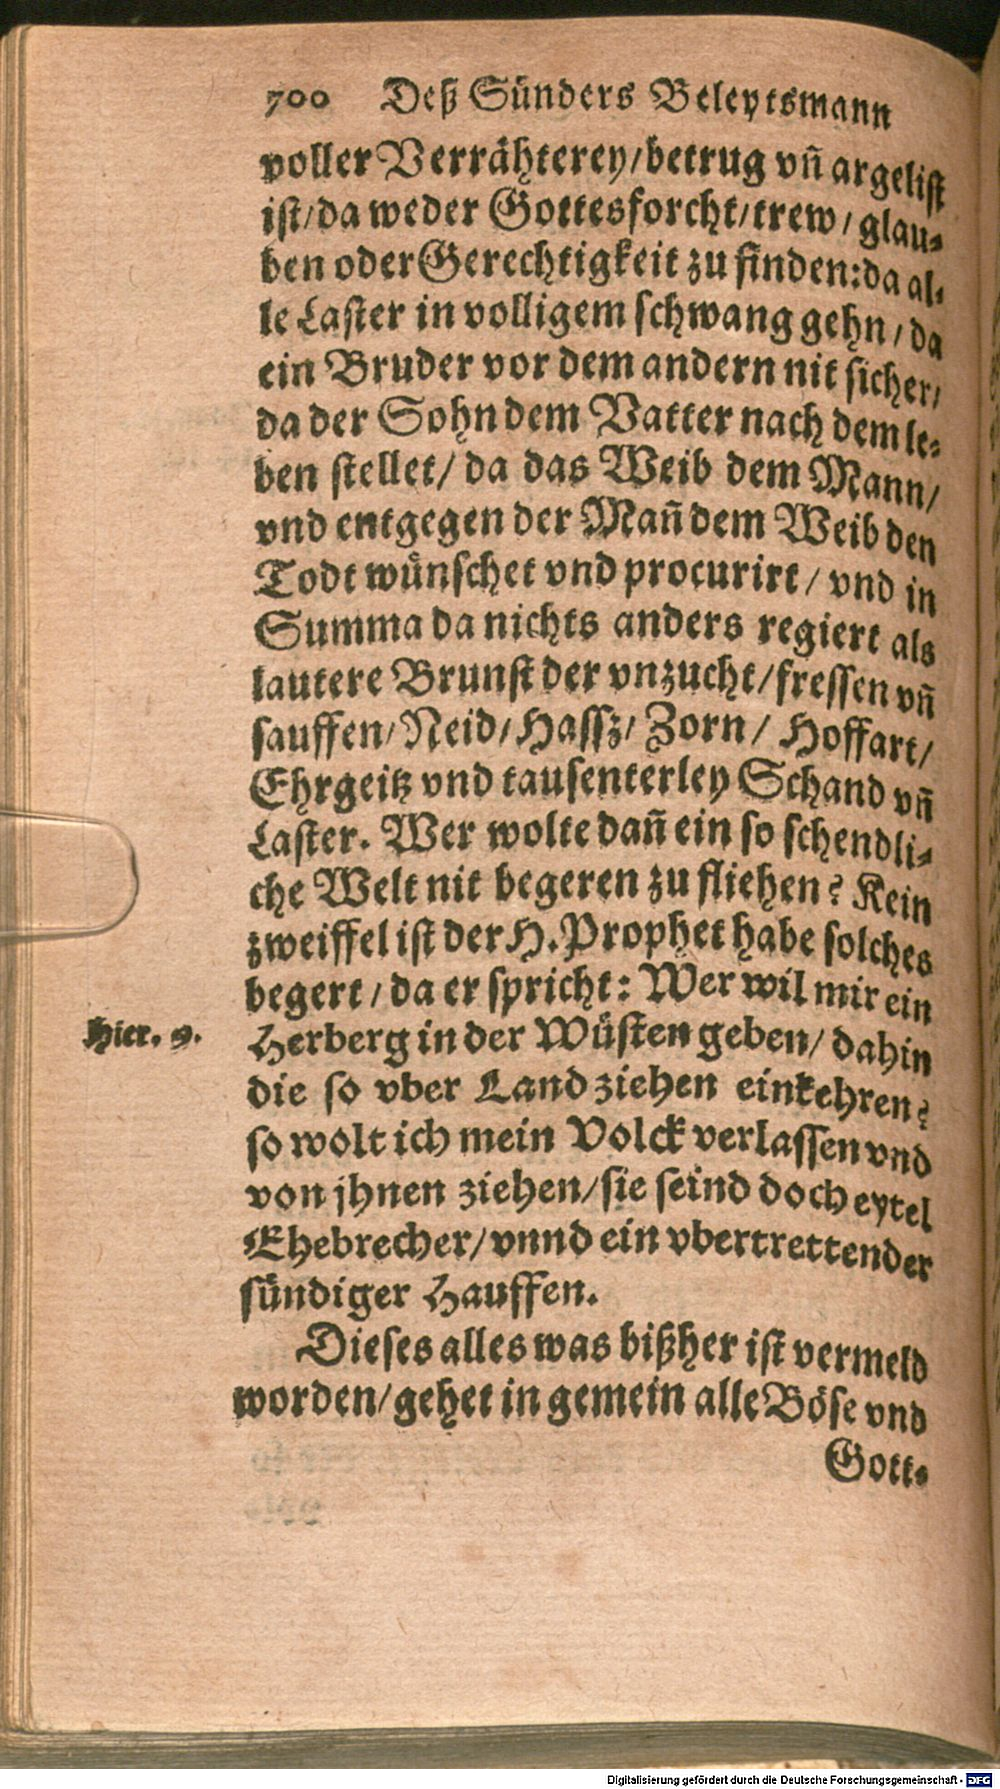 700 Deß Sünders Beleytsmann
voller Verrähterey/betrug vñ argelist
ist/da weder Gottesforcht/trew/glau-
ben oder Gerechtigkeit zu finden:da al-
le Laster in volligem schwang gehn/da
ein Bruder vor dem andern nit sicher/
da der Sohn dem Vatter nach dem le-
ben stellet/ da das Weib dem Mann/
vnd entgegen der Mañ dem Weib den
Todt wünschet vnd procurirt/ vnd in
Summa da nichts anders regiert als
lautere Brunst der vnzucht/fressen vñ
sauffen/Neid/Hassz/Zorn/ Hoffart/
Ehrgeitz vnd tausenterley Schand vñ
Laster. Wer wolte dañ ein so schendli-
che Welt nit begeren zu fliehen? Kein
zweiffel ist der H. Prophet habe solches
begert/da er spricht: Wer wil mir ein
Hier. 9.
Herberg in der Wüsten geben/ dahin
die so vber Land ziehen einkehren?
so wolt ich mein Volck verlassen vnd
von jhnen ziehen/sie seind doch eytel
Ehebrecher/vnnd ein vbertrettender
sündiger Hauffen.
Dieses alles was bißher ist vermeld
worden/gehet in gemein alle Böse vnd
Gott-
Digitalisierung gefördert durch die Deutsche Forschungsgemeinschaft - DFG